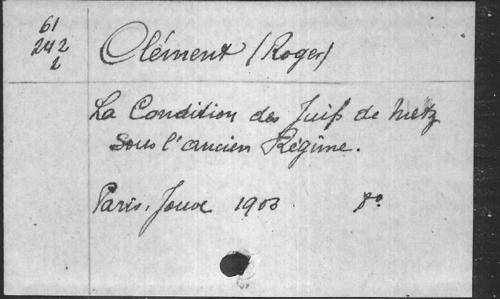 61
242
2
Clément (Roger)
La Condition des Juifs de Metz
sous l'ancien Régime.
Paris, Jouve 1903 8°